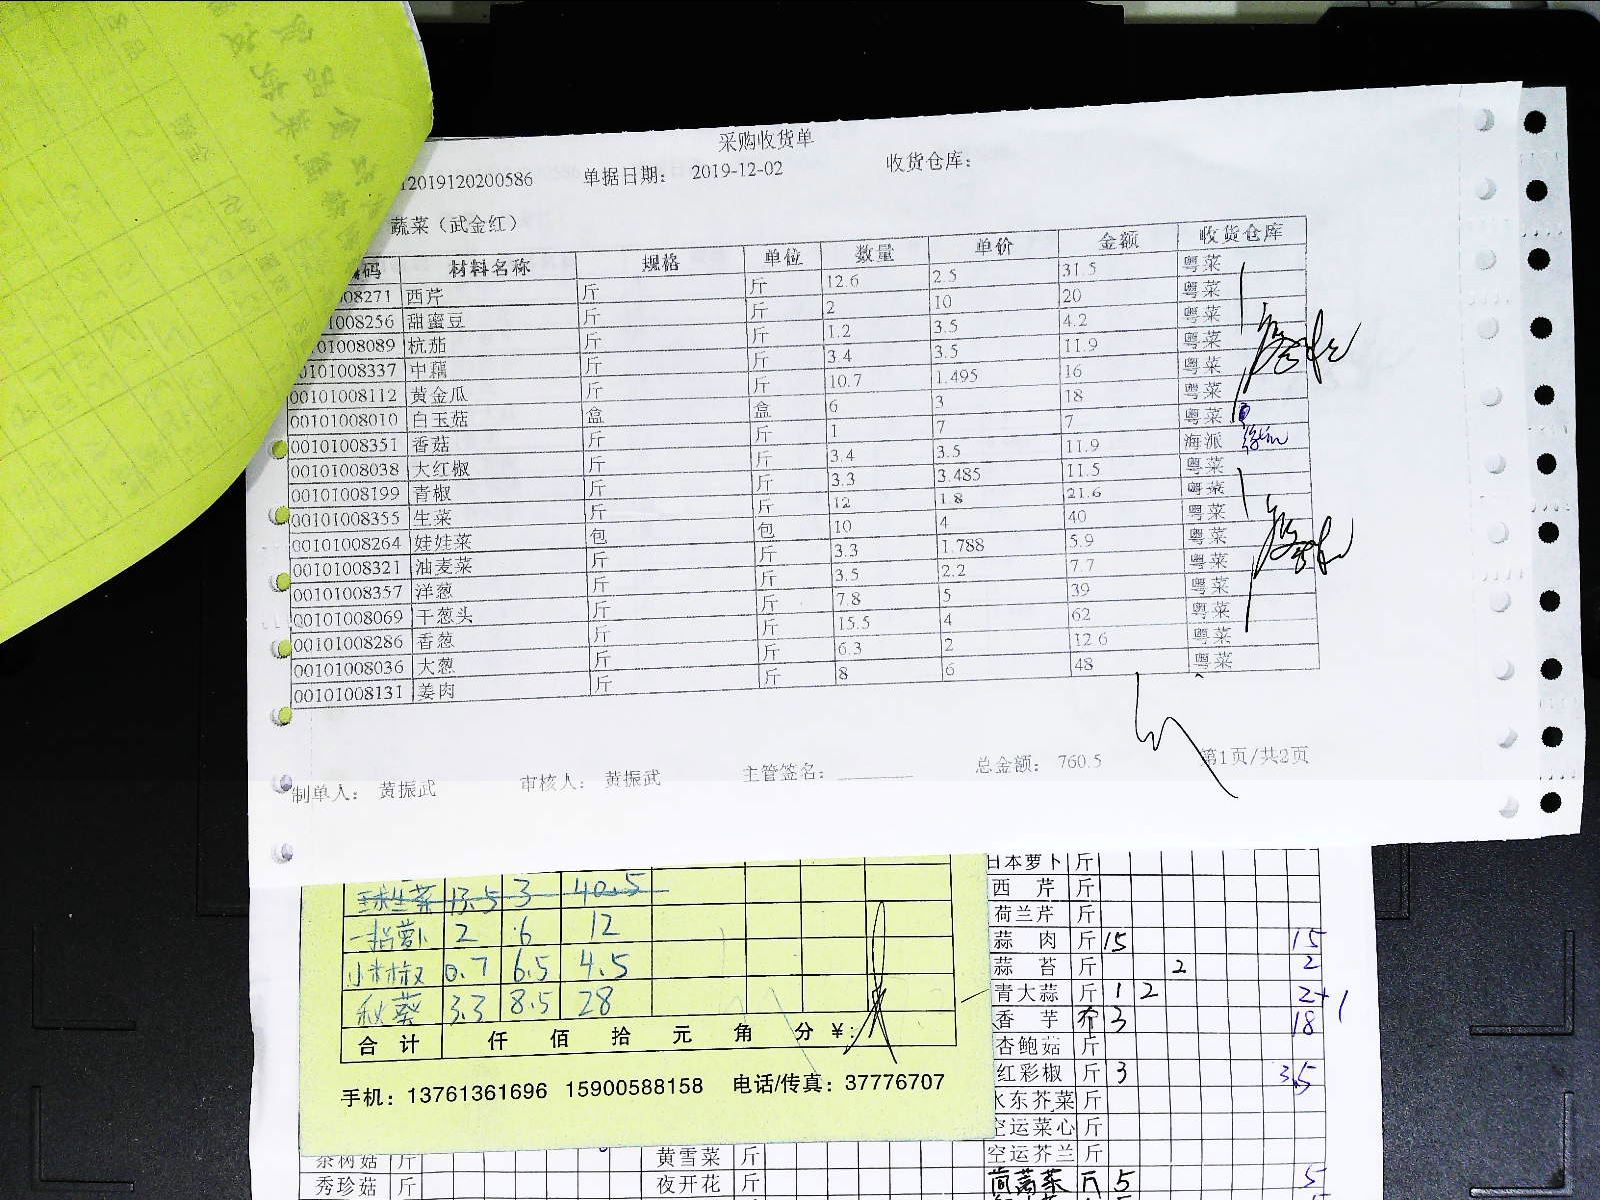 采购收货单
12019120200586 单据日期： 2019-12-02 收货仓库：
蔬菜（武金红）
码 材料名称 规格 单位 数量 单价 金额 收货仓库
008271 西芹 斤 斤 12.6 2.5 31.5 粤菜
1008256 甜蜜豆 斤 斤 2 10 20 粤菜
0101008089 杭茄 斤 斤 1.2 3.5 4.2 粤菜
00101008337 中藕 斤 斤 3.4 3.5 11.9 粤菜
00101008112 黄金瓜 斤 斤 10.7 1.495 16 粤菜
00101008010 白玉菇 盒 盒 6 3 18 粤菜
00101008351 香菇 斤 斤 1 7 7 粤菜
00101008038 大红椒 斤 斤 3.4 3.5 11.9 海派
00101008199 青椒 斤 斤 3.3 3.485 11.5 粤菜
00101008355 生菜 斤 斤 12 1.8 21.6 粤菜
00101008264 娃娃菜 包 包 10 4 40 粤菜
00101008321 油麦菜 斤 斤 3.3 1.788 5.9 粤菜
00101008357 洋葱 斤 斤 3.5 2.2 7.7 粤菜
00101008069 干葱头 斤 斤 7.8 5 39 粤菜
00101008286 香葱 斤 斤 15.5 4 62 粤菜
00101008036 大葱 斤 斤 6.3 2 12.6 粤菜
00101008131 姜肉 斤 斤 8 6 48 粤菜
制单人： 黄振武 审核人： 黄振武 主管签名： 总金额： 760.5 第1页/共2页
球生菜 13.5 3 40.5
萝卜 2 6 12
小米椒 0.7 6.5 4.5
秋葵 3.3 8.5 28
合计 仟 佰 拾 元 角 分 ¥:
手机：13761361696 15900588158 电话/传真：37776707
日本萝卜 斤
西芹 斤
荷兰芹 斤
蒜肉 斤 15 15
蒜苔 斤 2 2
青大蒜 斤 1 2 2+1
香芋 3 18
杏鲍菇 斤
红彩椒 斤 3 3.5
水东芥菜 斤
空运菜心 斤
空运芥兰 斤
茼蒿菜 斤 5 5
茶树菇 斤 黄雪菜 斤
秀珍菇 斤 夜开花 斤